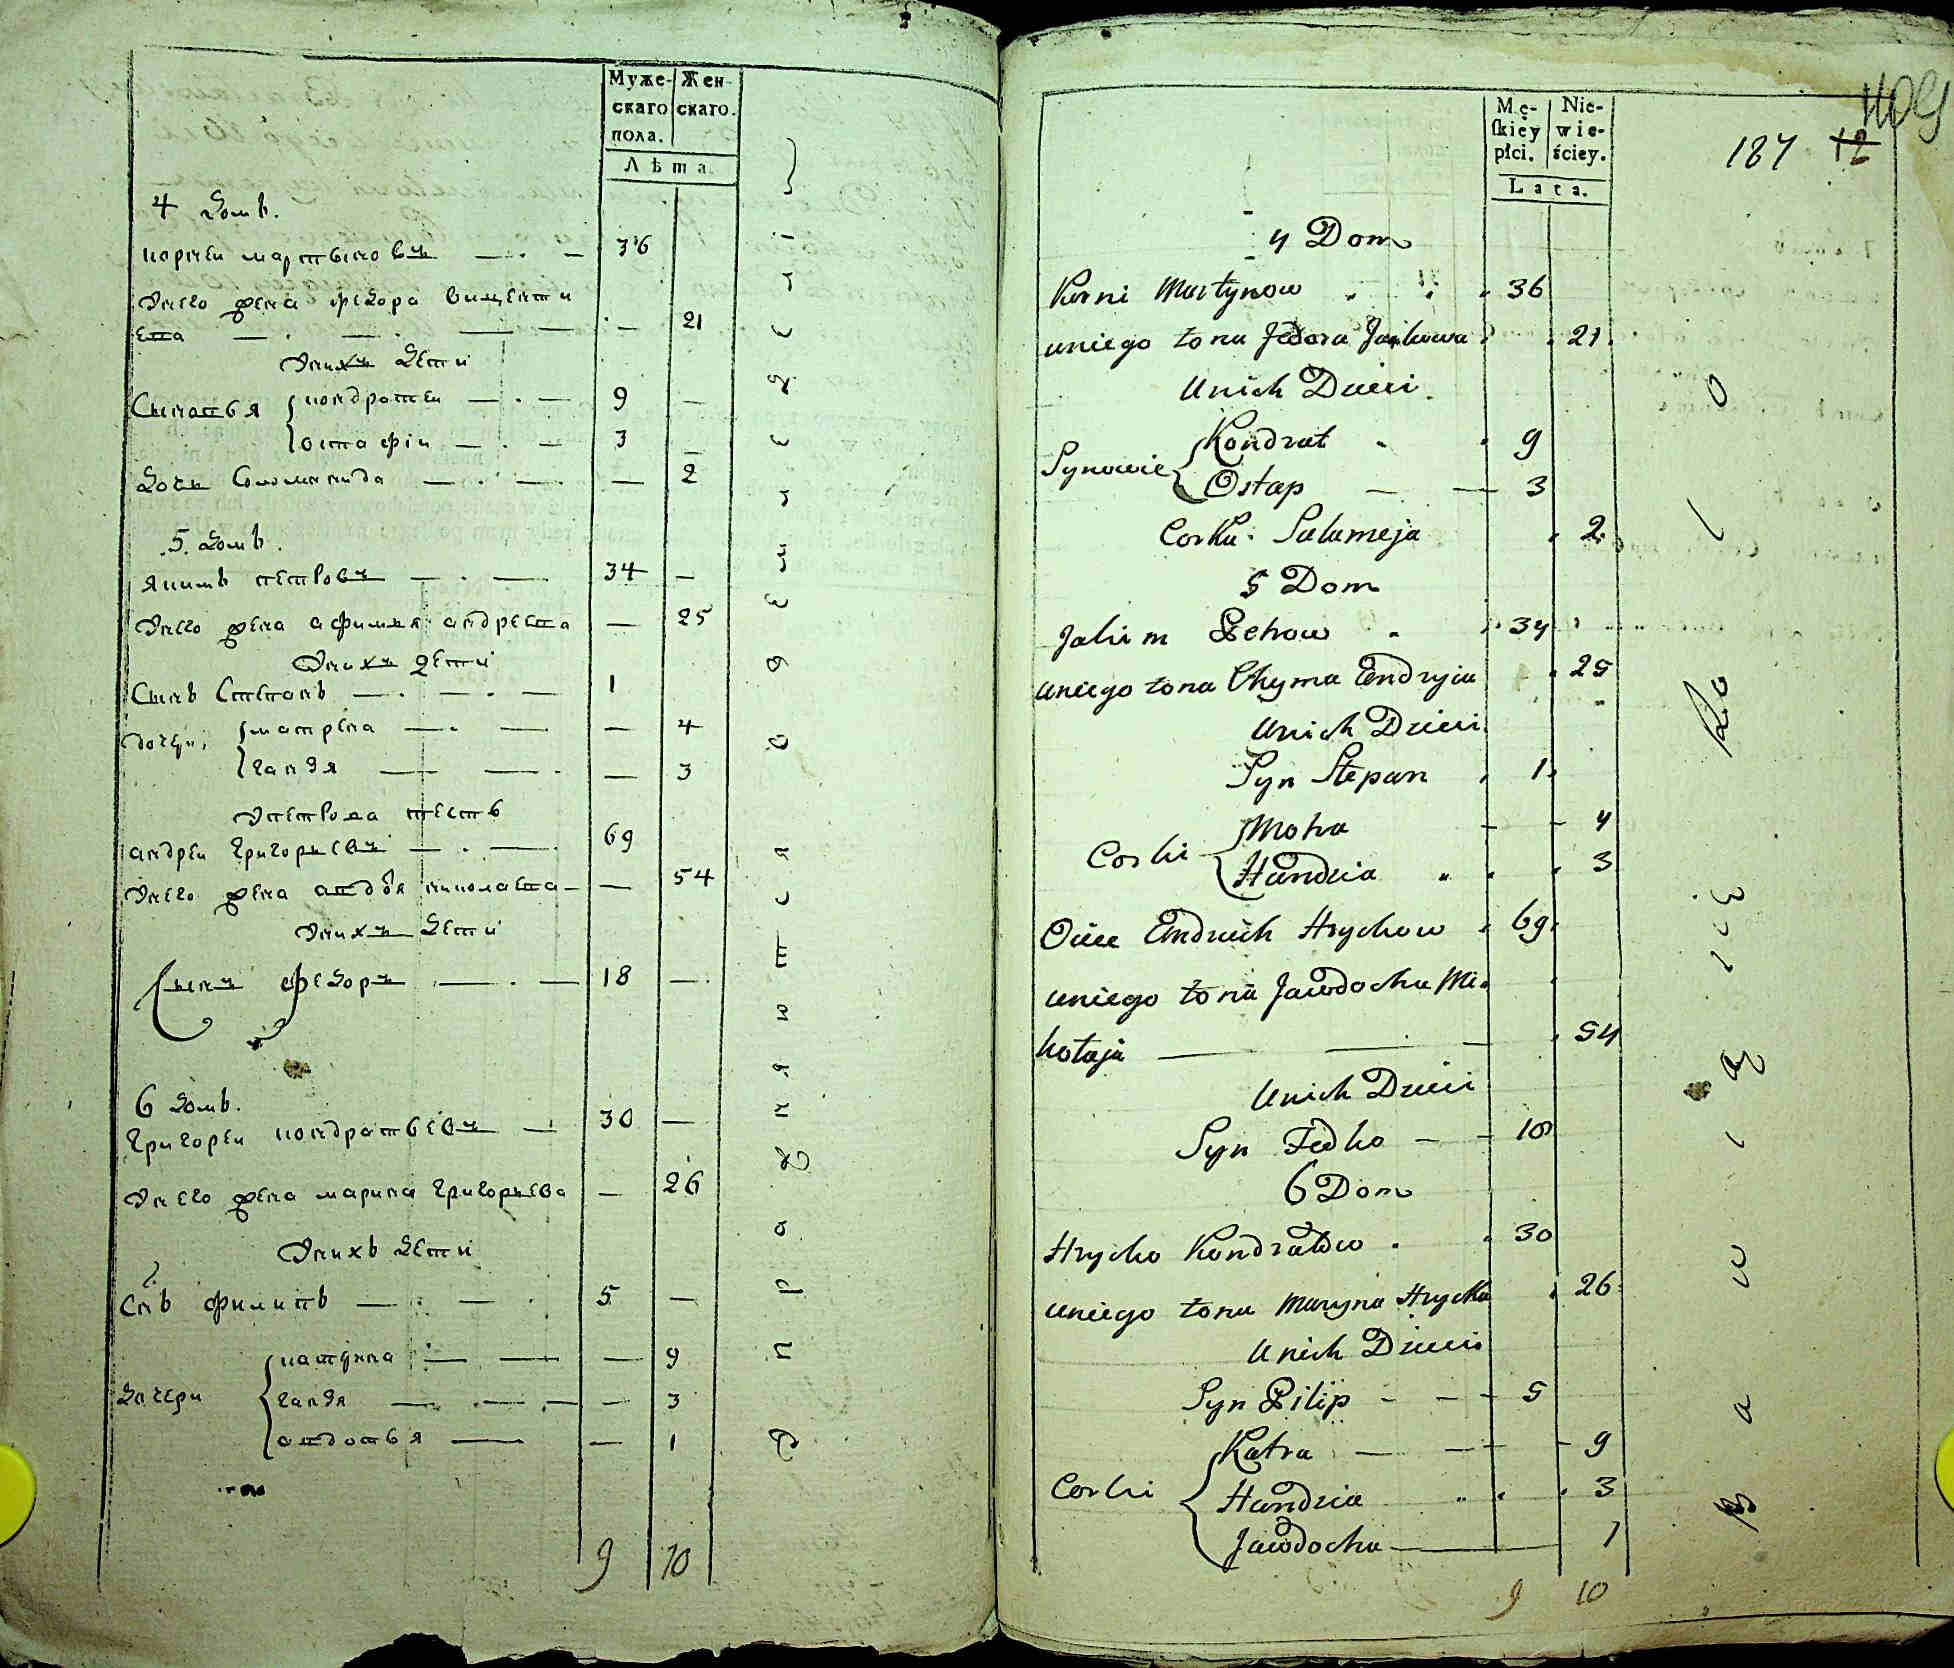 Муже- Жен-
скаго скаго.
пола.
Лѣта.
4 домъ.
корней мартыновъ — . — 36
Унего жена федора
21
Унихъ дети
Сыновья кондратей — . — 9 —
остафiй — . — 3 —
дочь Соломанида — . — . — 2
5 домъ.
якимъ петровъ — . — 34 —
Унего жена афимья андреева — 25
Унихъ дети
Сынъ Степанъ — . — . — 1
дочери, матрена — . — — 4
гандя — — . — 3
Упетрова тесть
андрей григорьевъ — . — 69
Унего жена авдотья николаева — — 54
Унихъ дети
Сынъ федоръ — . — 18 — .
6 домъ.
григорей кондратьевъ — 30 —
Унего жена марина григорьева — 26
Унихъ дети
Сынъ филипъ — . — . 5 —
дочери катерина — — — 9
гандя — . — . — — 3
авдотья — — 1
9 10
Mę- Nie-
skiey wie-
płci. ściey.
Lata.
187 12
4 Dom
Korni Martynow . . . 36
uniego żona Fedora Jankowa . 21.
Unich Dzieci.
Synowie Kondrat . . 9
Ostap — — 3
Corka: Salameja . 2.
5 Dom
Jakim Petrow . . 34
uniego żona Chyma Endryia . 25
Unich Dzieci
Syn Stepan . 1.
Corki Motra - - 4
Handzia . . . 3
Ociec Endruch Hrychow . 69.
uniego żona Jawdocha Mi-
kołaja — — — . 54
Unich Dzieci
Syn Fedko — - 18
6 Dom
Hrycko Kondratow . . 30
uniego żona Maryna Hrycka . 26
Unich Dzieci
Syn Pilip - - - 5
Corki Katra — — - 9
Handzia . . . 3
Jawdocha — — 1
9 10